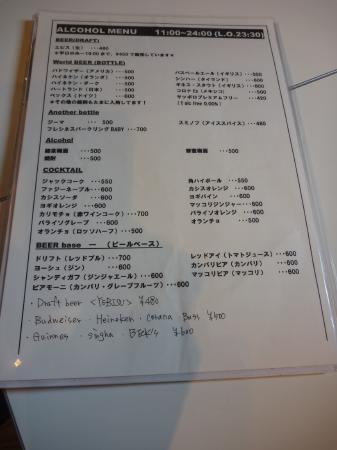 ALCOHOL MENU 11:00~24:00 (L.O.23:30)
BEER(DRAFT)
エビス(生) ・・・480
World BEER (BOTTLE)
バドワイザー(アメリカ) ・・・500 バスペールエール(イギリス) ・・・550
ハイネケン(オランダ) ・・・500 シンハー(タイランド) ・・・600
ハイネケン・ダーク ・・・600 ギネス・スタウト(イギリス) ・・・600
ハートランド(日本) ・・・500 コロナ(メキシコ) ・・・600
ベックス(ドイツ) ・・・600 サッポロプレミアムフリー ・・・420
★その他の銘柄もたまに入荷してます! (alc free 0.00%)
Another bottle
ジーマ ・・・ 500 スミノフ(アイススパイス) ・・・480
フレシネスパークリング BABY ・・・700
Alcohol
・・・500 ・・・500
焼酎 ・・・500
COCKTAIL
ジャックコーク ・・・550 角ハイボール ・・・550
ファジーネーブル ・・・600 カシスオレンジ ・・・600
カシスソーダ ・・・600 ヨギパイン ・・・600
ヨギオレンジ ・・・600 マッコリジンジャー ・・・600
カリモチョ(赤ワインコーク) ・・・700 パライソオレンジ ・・・600
パライソグレープ ・・・600 オランチョ ・・・500
オランチョ(ロッソハーフ) ・・・500
BEER base ー (ビールベース)
ドリフト(レッドブル) ・・・700 レッドアイ(トマトジュース) ・・・600
ヨーシュ(ジン) ・・・600 カンパリビア(カンパリ) ・・・600
シャンディガフ(ジンジャエール) ・・・600 マッコリビア(マッコリ) ・・・600
ビアモーニ(カンパリ・グレープフルーツ) ・・・600
・Draft beer <YEBISU> ¥480
・Budweiser・Heineken・corona Bass ¥500
・Guinness・singha・BECK's ¥600